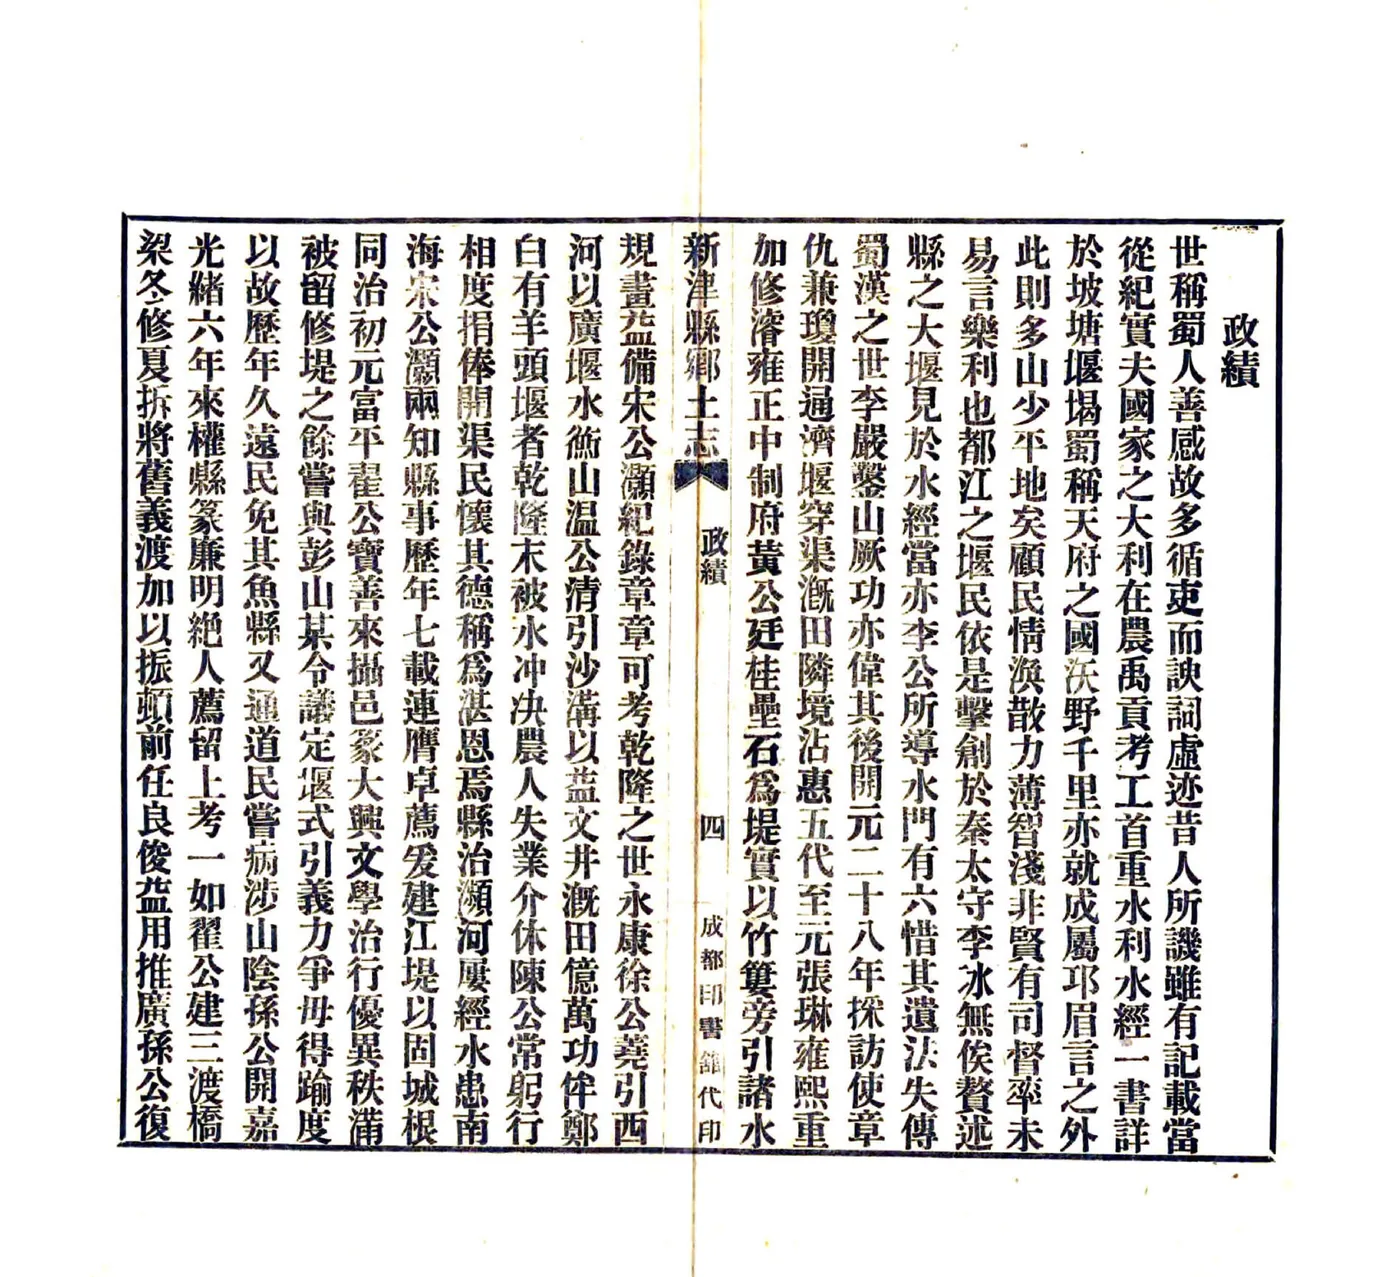 政績
世稱蜀人善感故多循吏而諛詞虛迹昔人所譏雖有記載當
從紀實夫國家之大利在農禹貢考工首重水利水經一書詳
於坡塘堰堨蜀稱天府之國沃野千里亦就成屬邛眉言之外
此則多山少平地矣顧民情渙散力薄智淺非賢有司督率未
易言樂利也都江之堰民依是繫創於秦太守李冰無俟贅述
縣之大堰見於水經當亦李公所導水門有六惜其遺法失傳
蜀漢之世李嚴鑿山厥功亦偉其後開元二十八年採訪使章
仇兼瓊開通濟堰穿渠溉田隣境沾惠五代至元張琳雍熙重
加修濬雍正中制府黃公廷桂壘石爲堤實以竹簍旁引諸水
新津縣鄉土志
政績
四
成都印書館代印
規畫益備宋公灝紀錄章章可考乾隆之世永康徐公蕘引西
河以廣堰水衜山温公清引沙溝以益文井溉田億萬功侔鄭
白有羊頭堰者乾隆末被水冲决農人失業介休陳公常躬行
相度捐俸開渠民懷其德稱爲湛恩焉縣治瀕河屢經水患南
海宋公灝兩知縣事歷年七載連膺卓薦爰建江堤以固城根
同治初元富平翟公寶善來攝邑篆大興文學治行優異秩滿
被留修堤之餘嘗與彭山某令議定堰式引義力爭毋得踰度
以故歷年久遠民免其魚縣又通道民嘗病涉山陰孫公開嘉
光緒六年來權縣篆廉明絶人薦留上考一如翟公建三渡橋
梁冬修夏拆將舊義渡加以振頓前任良俊益用推廣孫公復